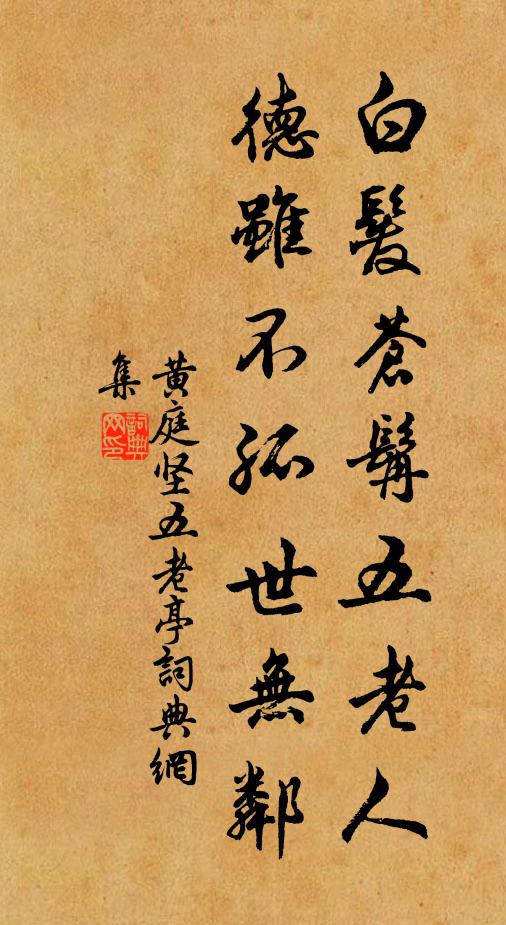 白髮蒼髯五老人
德雖不孤世無鄰
黄庭坚五老亭詞典網
集
詞典
网印